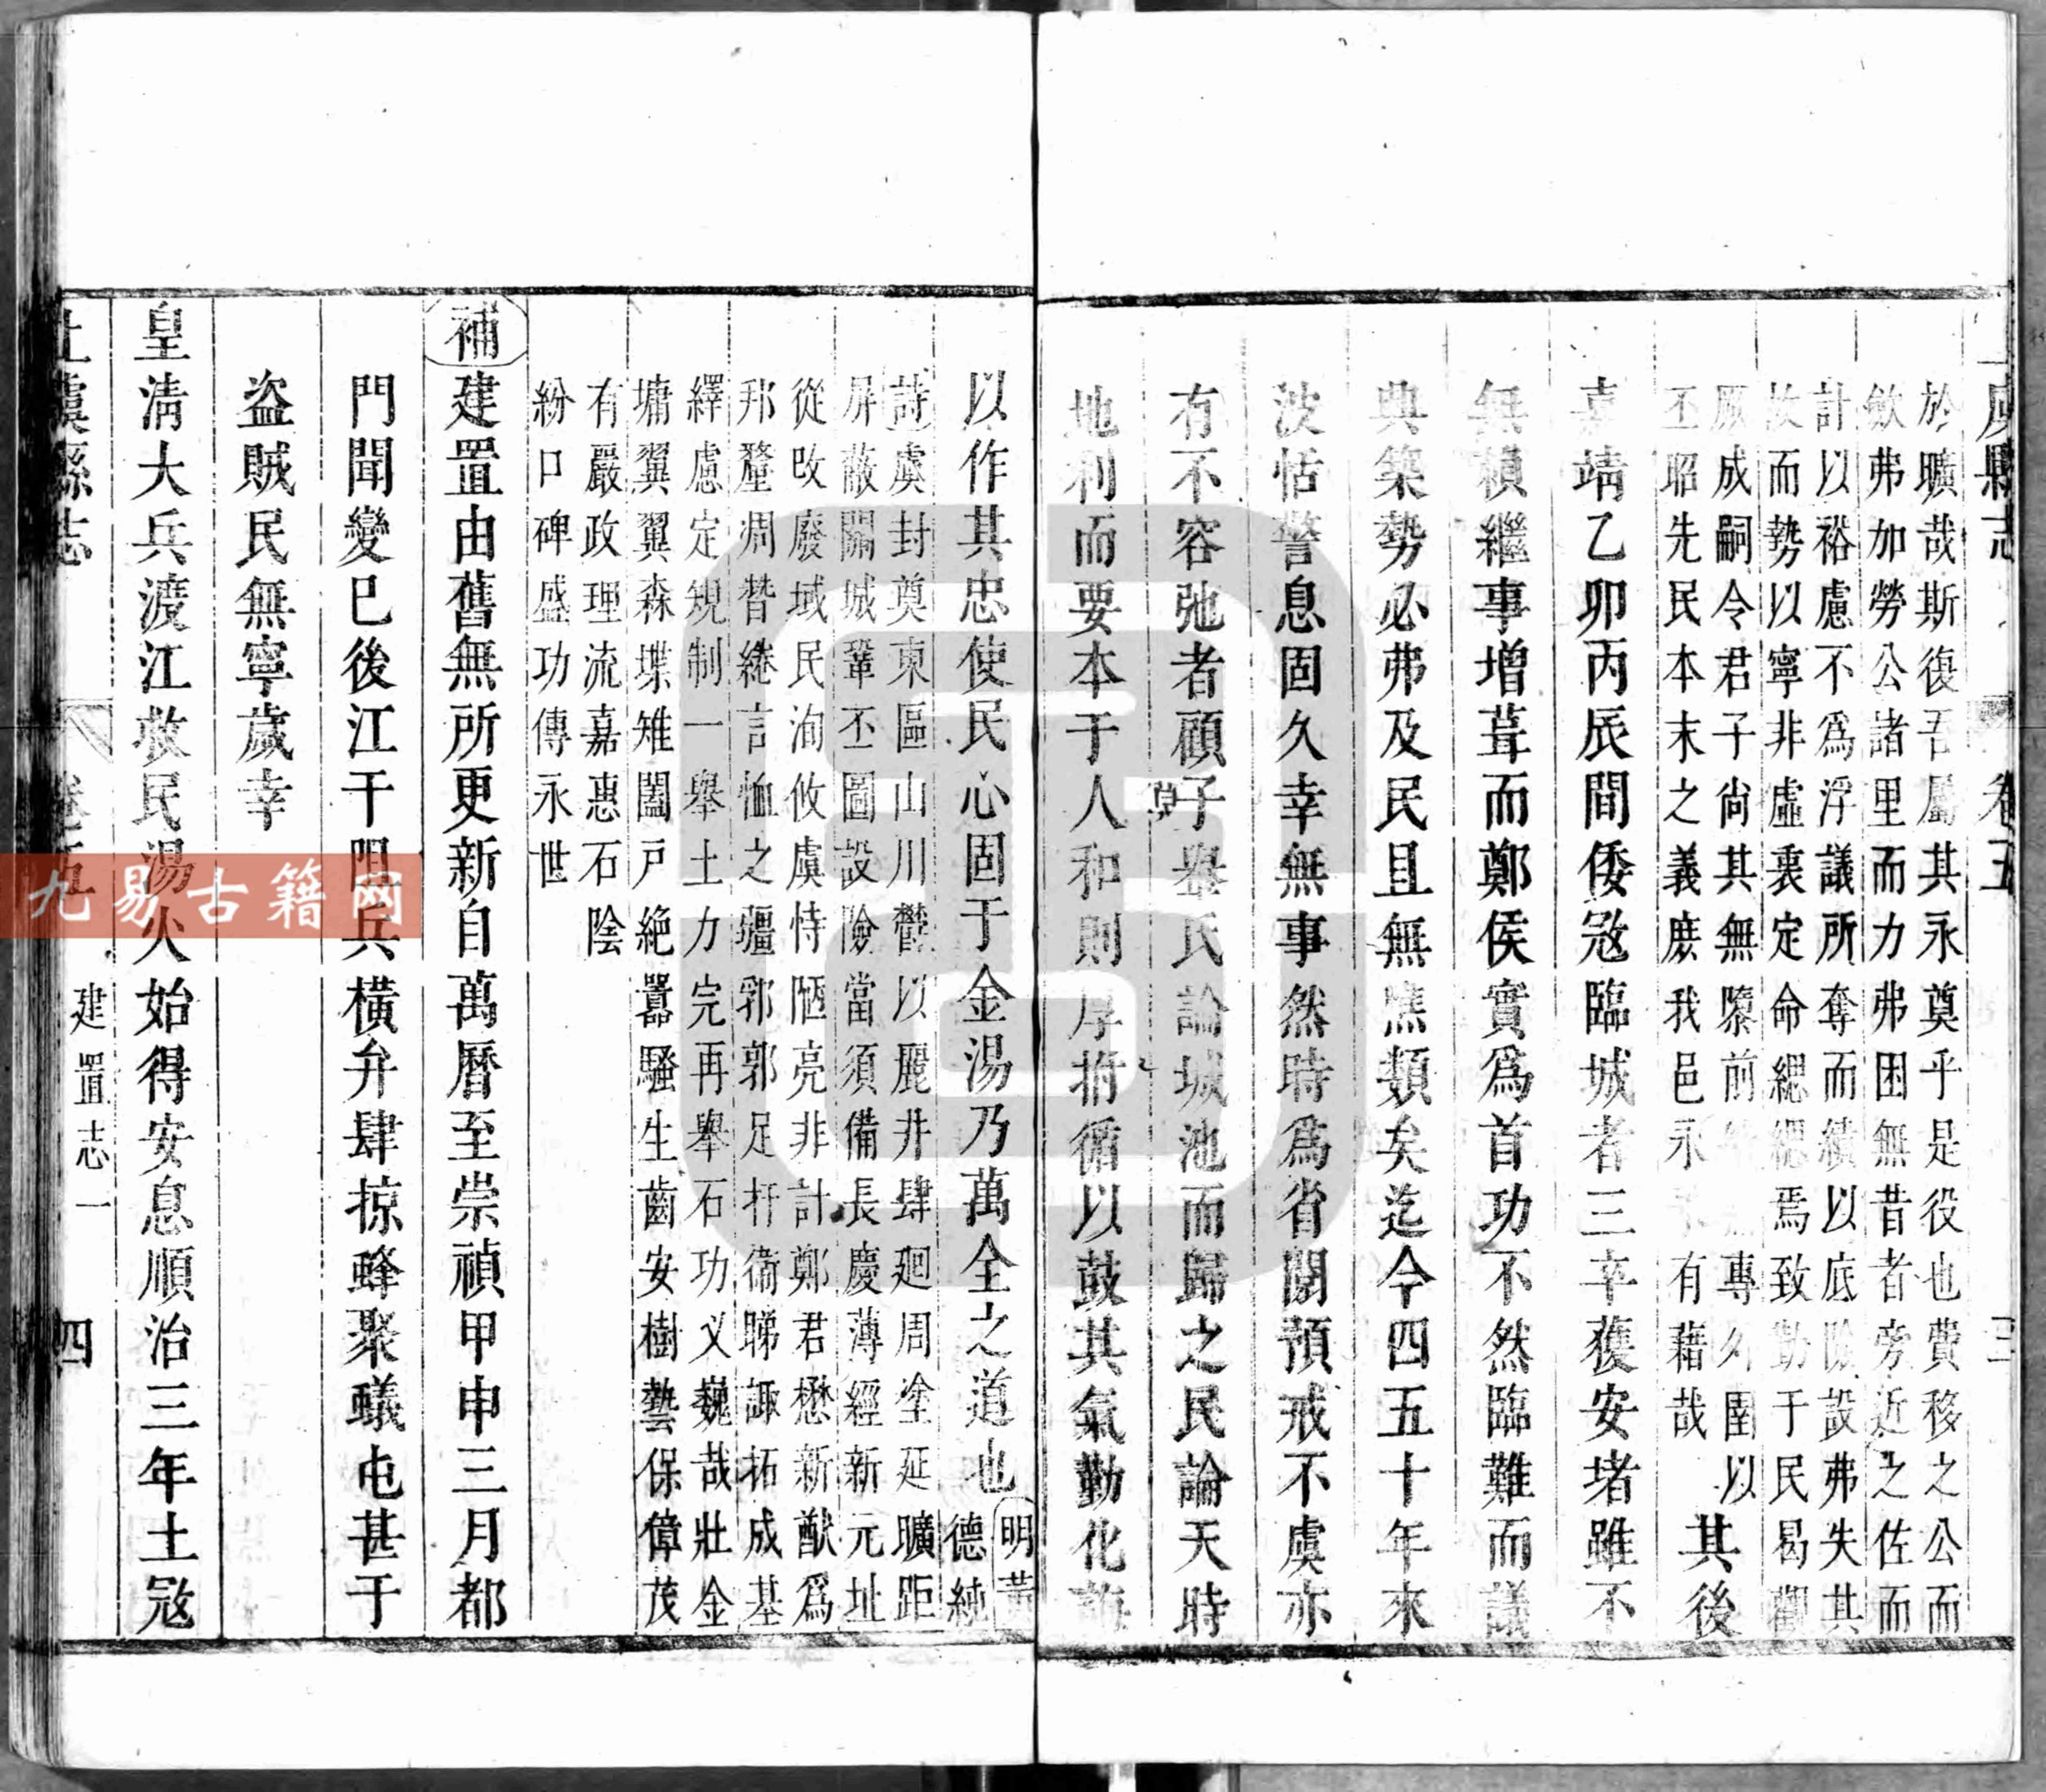 虞縣志 卷五 三
於曠哉斯復吾屬其永奠乎是役也費移之公而
歛弗加勞公諸里而力弗困無昔者旁近之佐而
計以裕慮不為浮議所奪而績以底險設弗失其
故而勢以寧非虛裏定命緦緦焉致勤于民曷觀
厥成嗣令君子尚其無隳前 專久圉以
丕昭先民本末之義庶我邑永 有藉哉
其後
嘉靖乙卯丙辰間倭寇臨城者三幸獲安堵雖不
無賴繼事增葺而鄭侯實為首功不然臨難而議
典築勢必弗及民且無噍類矣迄今四五十年來
波恬警息固久幸無事然時為省閱預戒不虞亦
有不容弛者顧子輿氏論城池而歸之民論天時
地利而要本于人和則厚拊循以鼓其氣勤化誨
以作其忠使民心固于金湯乃萬全之道也
明黃
德純
詩虞封奠東區山川鬱以麗井肆廻周塗延曠距
屏蔽關城鞏丕圖設險當須備長慶薄經新元址
從改廢域民洵攸虞恃陋亮非計鄭君懋新猷為
邦釐凋瞀綣言恤之疆郛郭足扞衛睇諏拓成基
繹慮定規制一舉土力完再舉石功乂巍哉壯金
墉翼翼森堞雉闔戶絶囂騷生齒安樹藝保偉茂
有嚴政理流嘉惠石陰
紛口碑盛功傳永世
補
建置由舊無所更新自萬曆至崇禎甲申三月都
門聞變巳後江干阻兵橫弁肆掠蜂聚蟻屯甚于
盜賊民無寧歲幸
皇清大兵渡江救民湯火始得安息順治三年土寇
上虞縣志 卷五 建置志一 四
九易古籍网